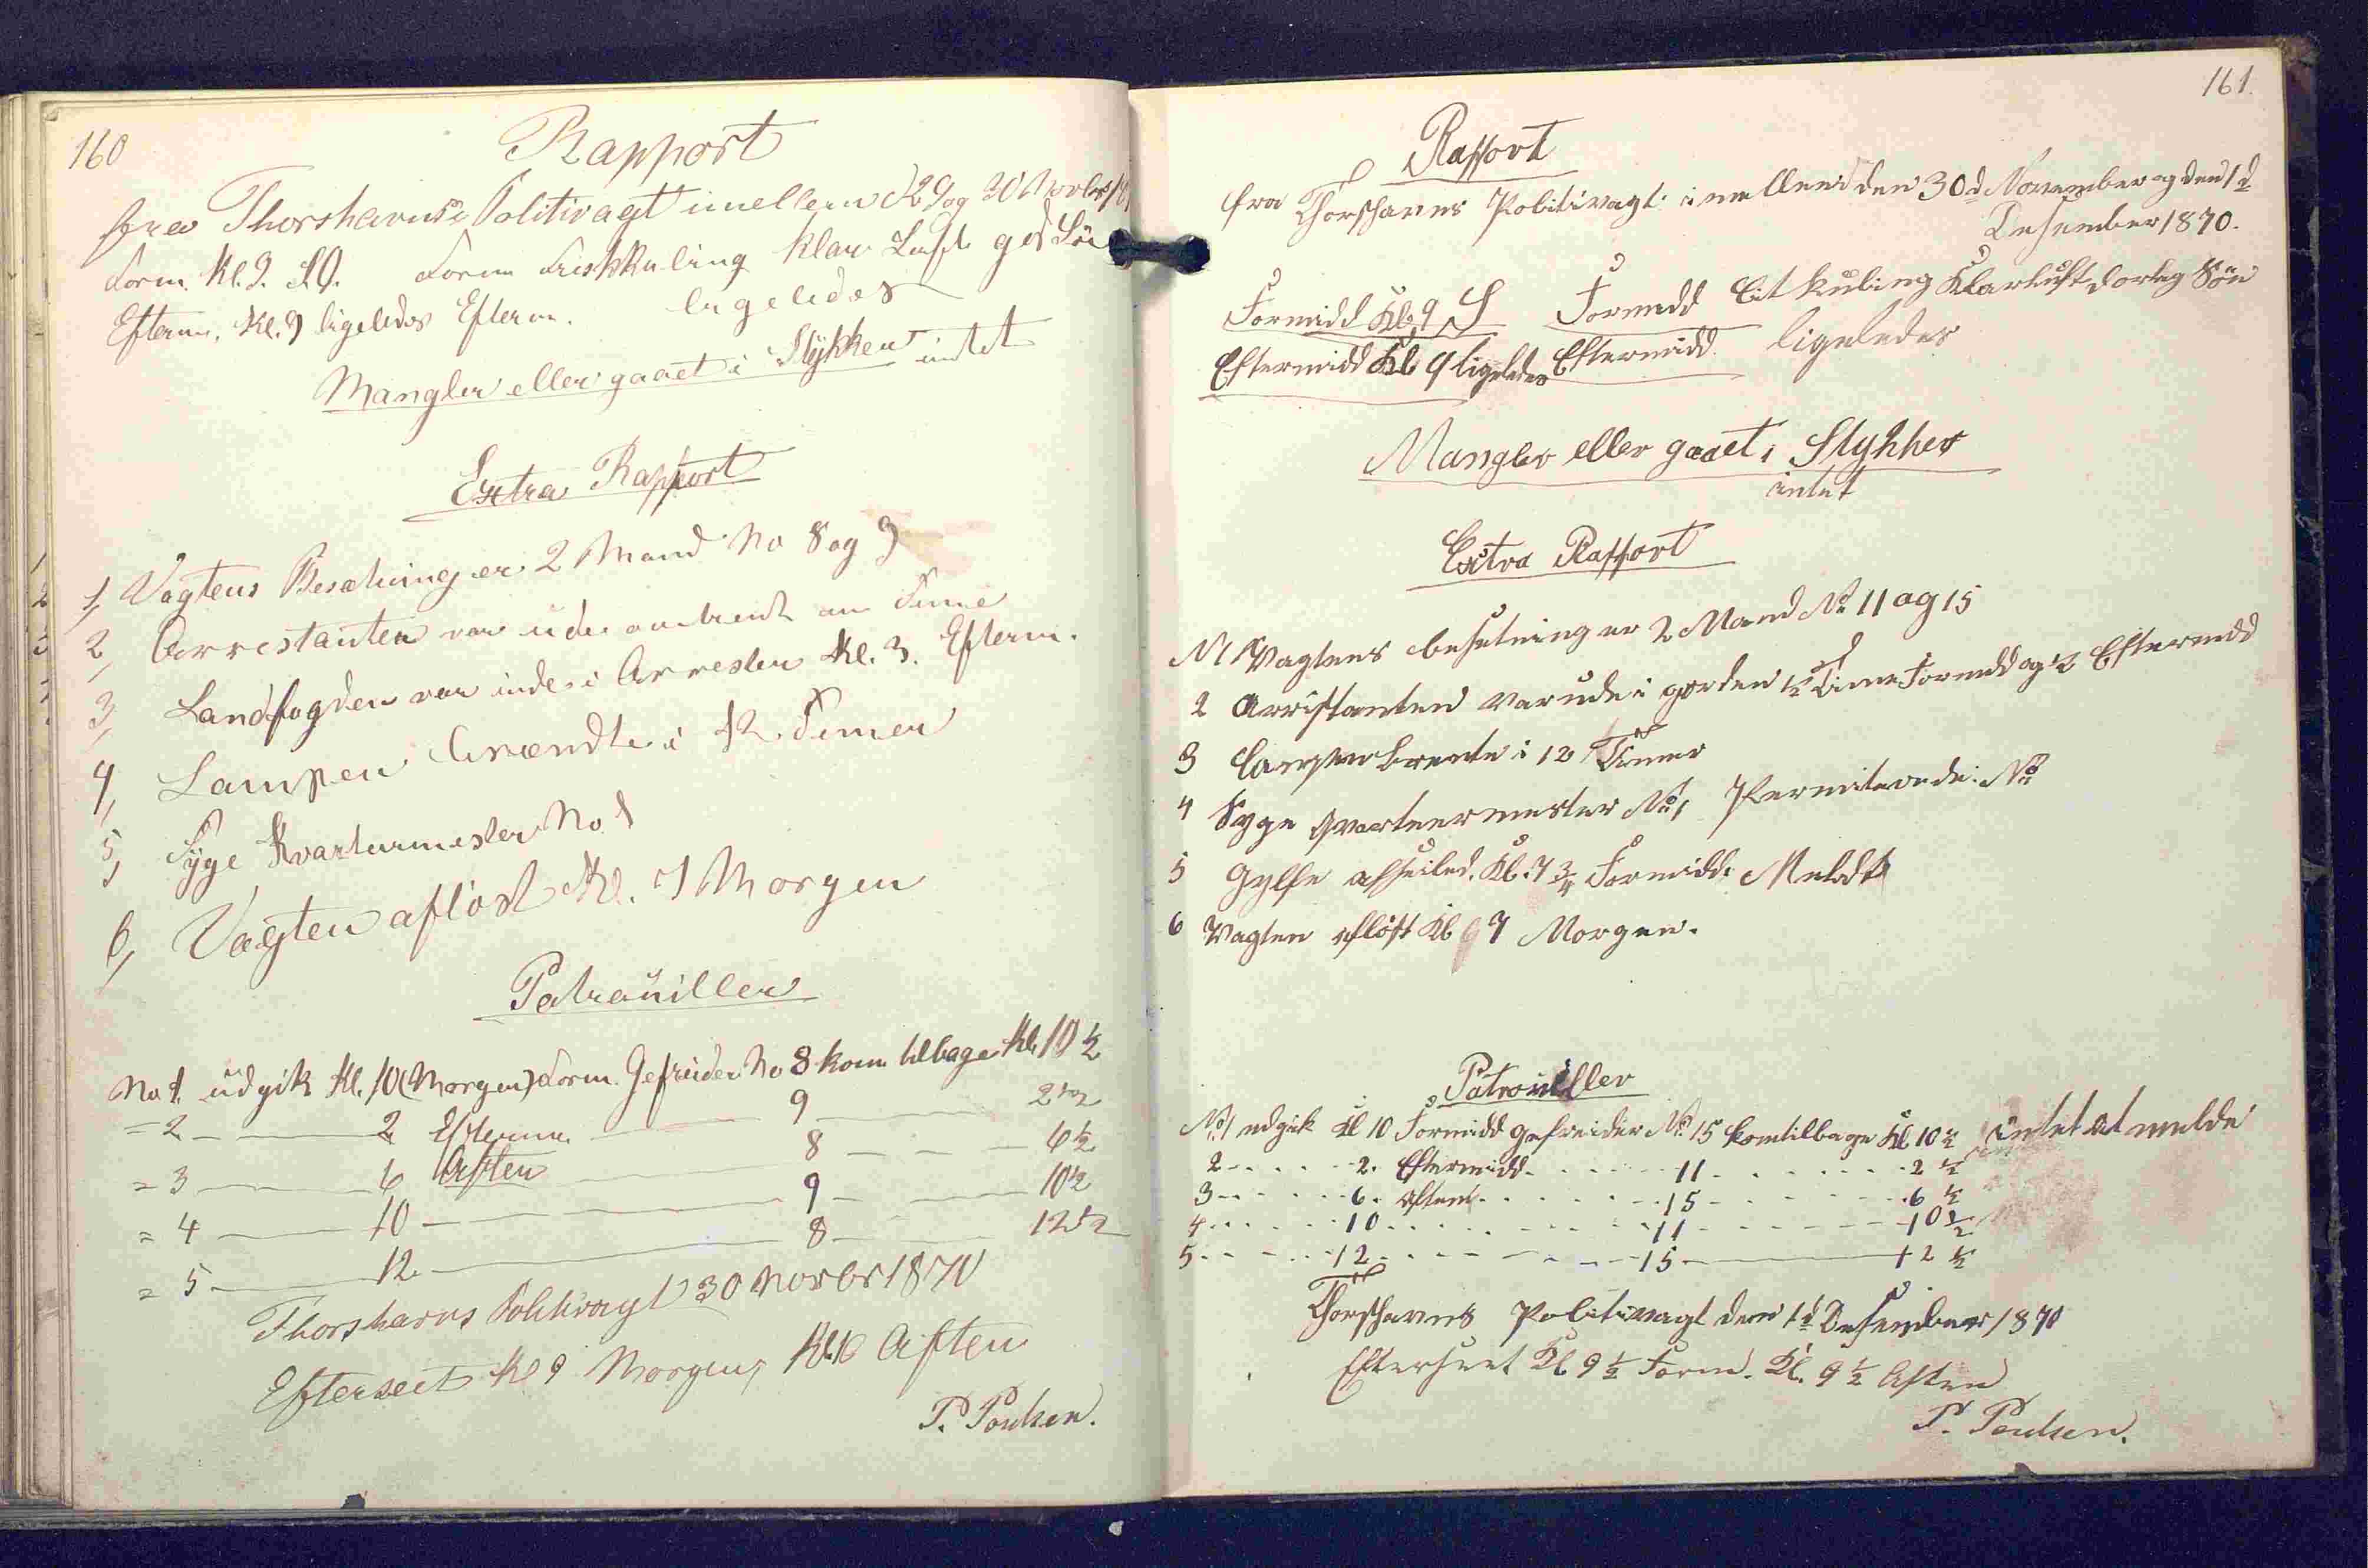 160
Rapport
fra Thorshavns Politivagt imellem d 29 og 30 Novbr
Form. Kl. 9. SO. Form Friskkuling klar Luft god Sön
Efterm. Kl. 9 ligeledes Efterm. ligeledes
Mangler eller gaaet i Stykker intet
Extra Rapport
1, Vagtens Besætning er 2 Mand No 8 og 9
2, Arrestanten var ude omtrent en Time
3, Landfogden var inde i Arresten Kl. 3. Efterm.
4, Lampen brændte i 12 Timer
5, Syge Kvartermester No 1
6, Vagten aflöst Kl. 7 Morgen
Patrouiller
No 1. udgik Kl. 10 (Morgen) Form. Gefreider No 8 kom tilbage Kl. 10 ½
= 2 — 2 Efterm. — 9 — 2 ½
= 3 — 6 Aften — 8 — 6 ½
= 4 — 10 — 9 — 10 ½
= 5 — 12 — 8 — 12 ½
Thorshavns Politivagt 30 Novbr 1870
Efterseet Kl 9 Morgen, Kl. 10 Aften
P. Poulsen.
161.
Rapport
fra Thorshavns Politivagt imellem den 30d November og den 1d
Desember 1870.
Formidd Kl. 9 S Formidd Lit kuling Klar luft dorlig Sön
Eftermidd Kl 9 ligeledes Eftermidd ligeledes
Mangler eller gaaet i Stykker
intet
Extra Rapport
No 1 Vagtens besetning er 2 Mand No 11 og 15
2 Arristanten var ude i gorden ½ Time Formidd og ½ Eftermidd
3 Lampen brente i 12 Timer
4 Syge Qvarteermester No 1, Permiterede: No
5 Gylfe afseiled. Kl. 7 ¾ Formidd. Meldt
6 Vagten aflöst Kl 7 Morgen.
Patrouiller
No 1 udgik Kl 10 Formidd gefreider No 15 kom tilbage Kl 10 ½ intet at melde
2 - - - 2. Eftermidd. - - - 11 - - - 2 ½
3 - - - 6. Aften - - - 15 - - - 6 ½
4 - - - 10 - - - 11 - - - 10 ½
5 - - - 12 - - - 15 — 12 ½
Thorshavns Politivagt den 1d Desember 1870
Efterseet Kl. 9 ½ Form. Kl. 9 ½ Aften
P. Poulsen.